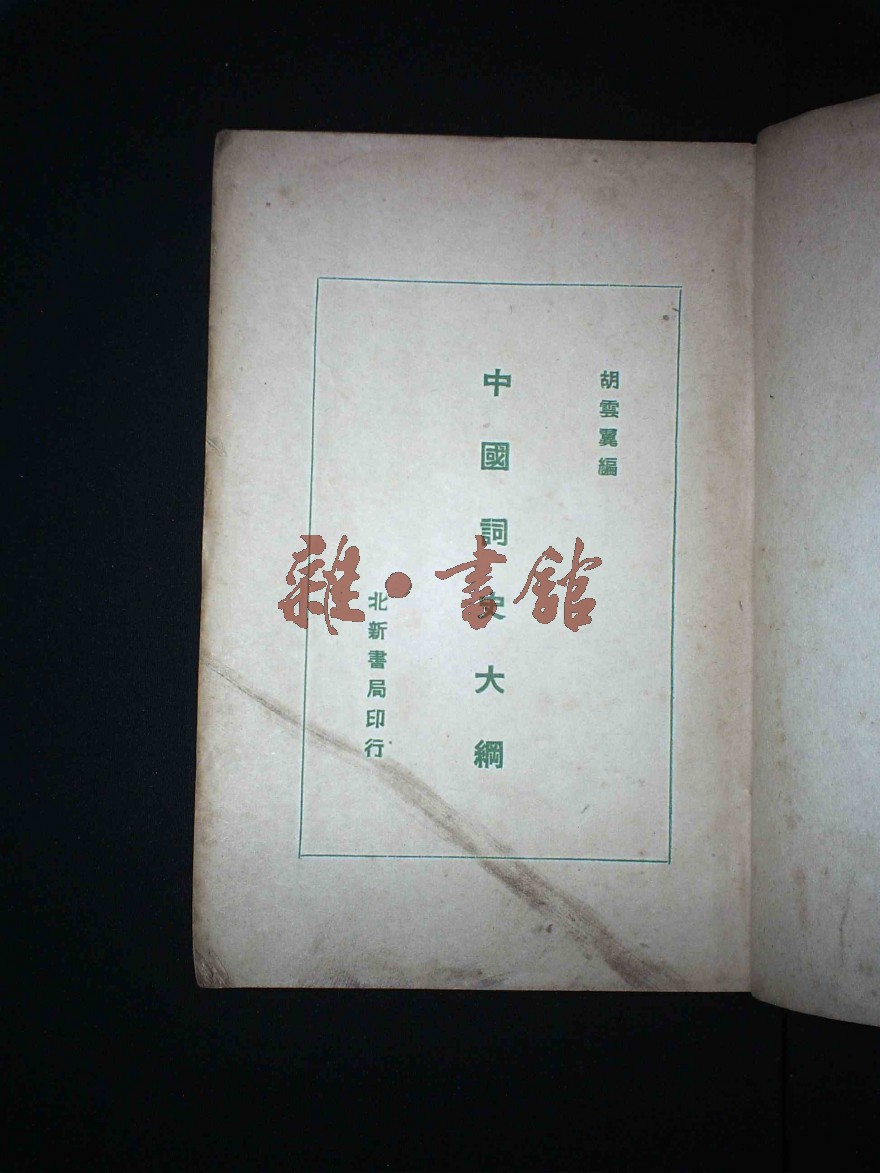 胡雲翼編
中國詞史大綱
北新書局印行
雜·書館